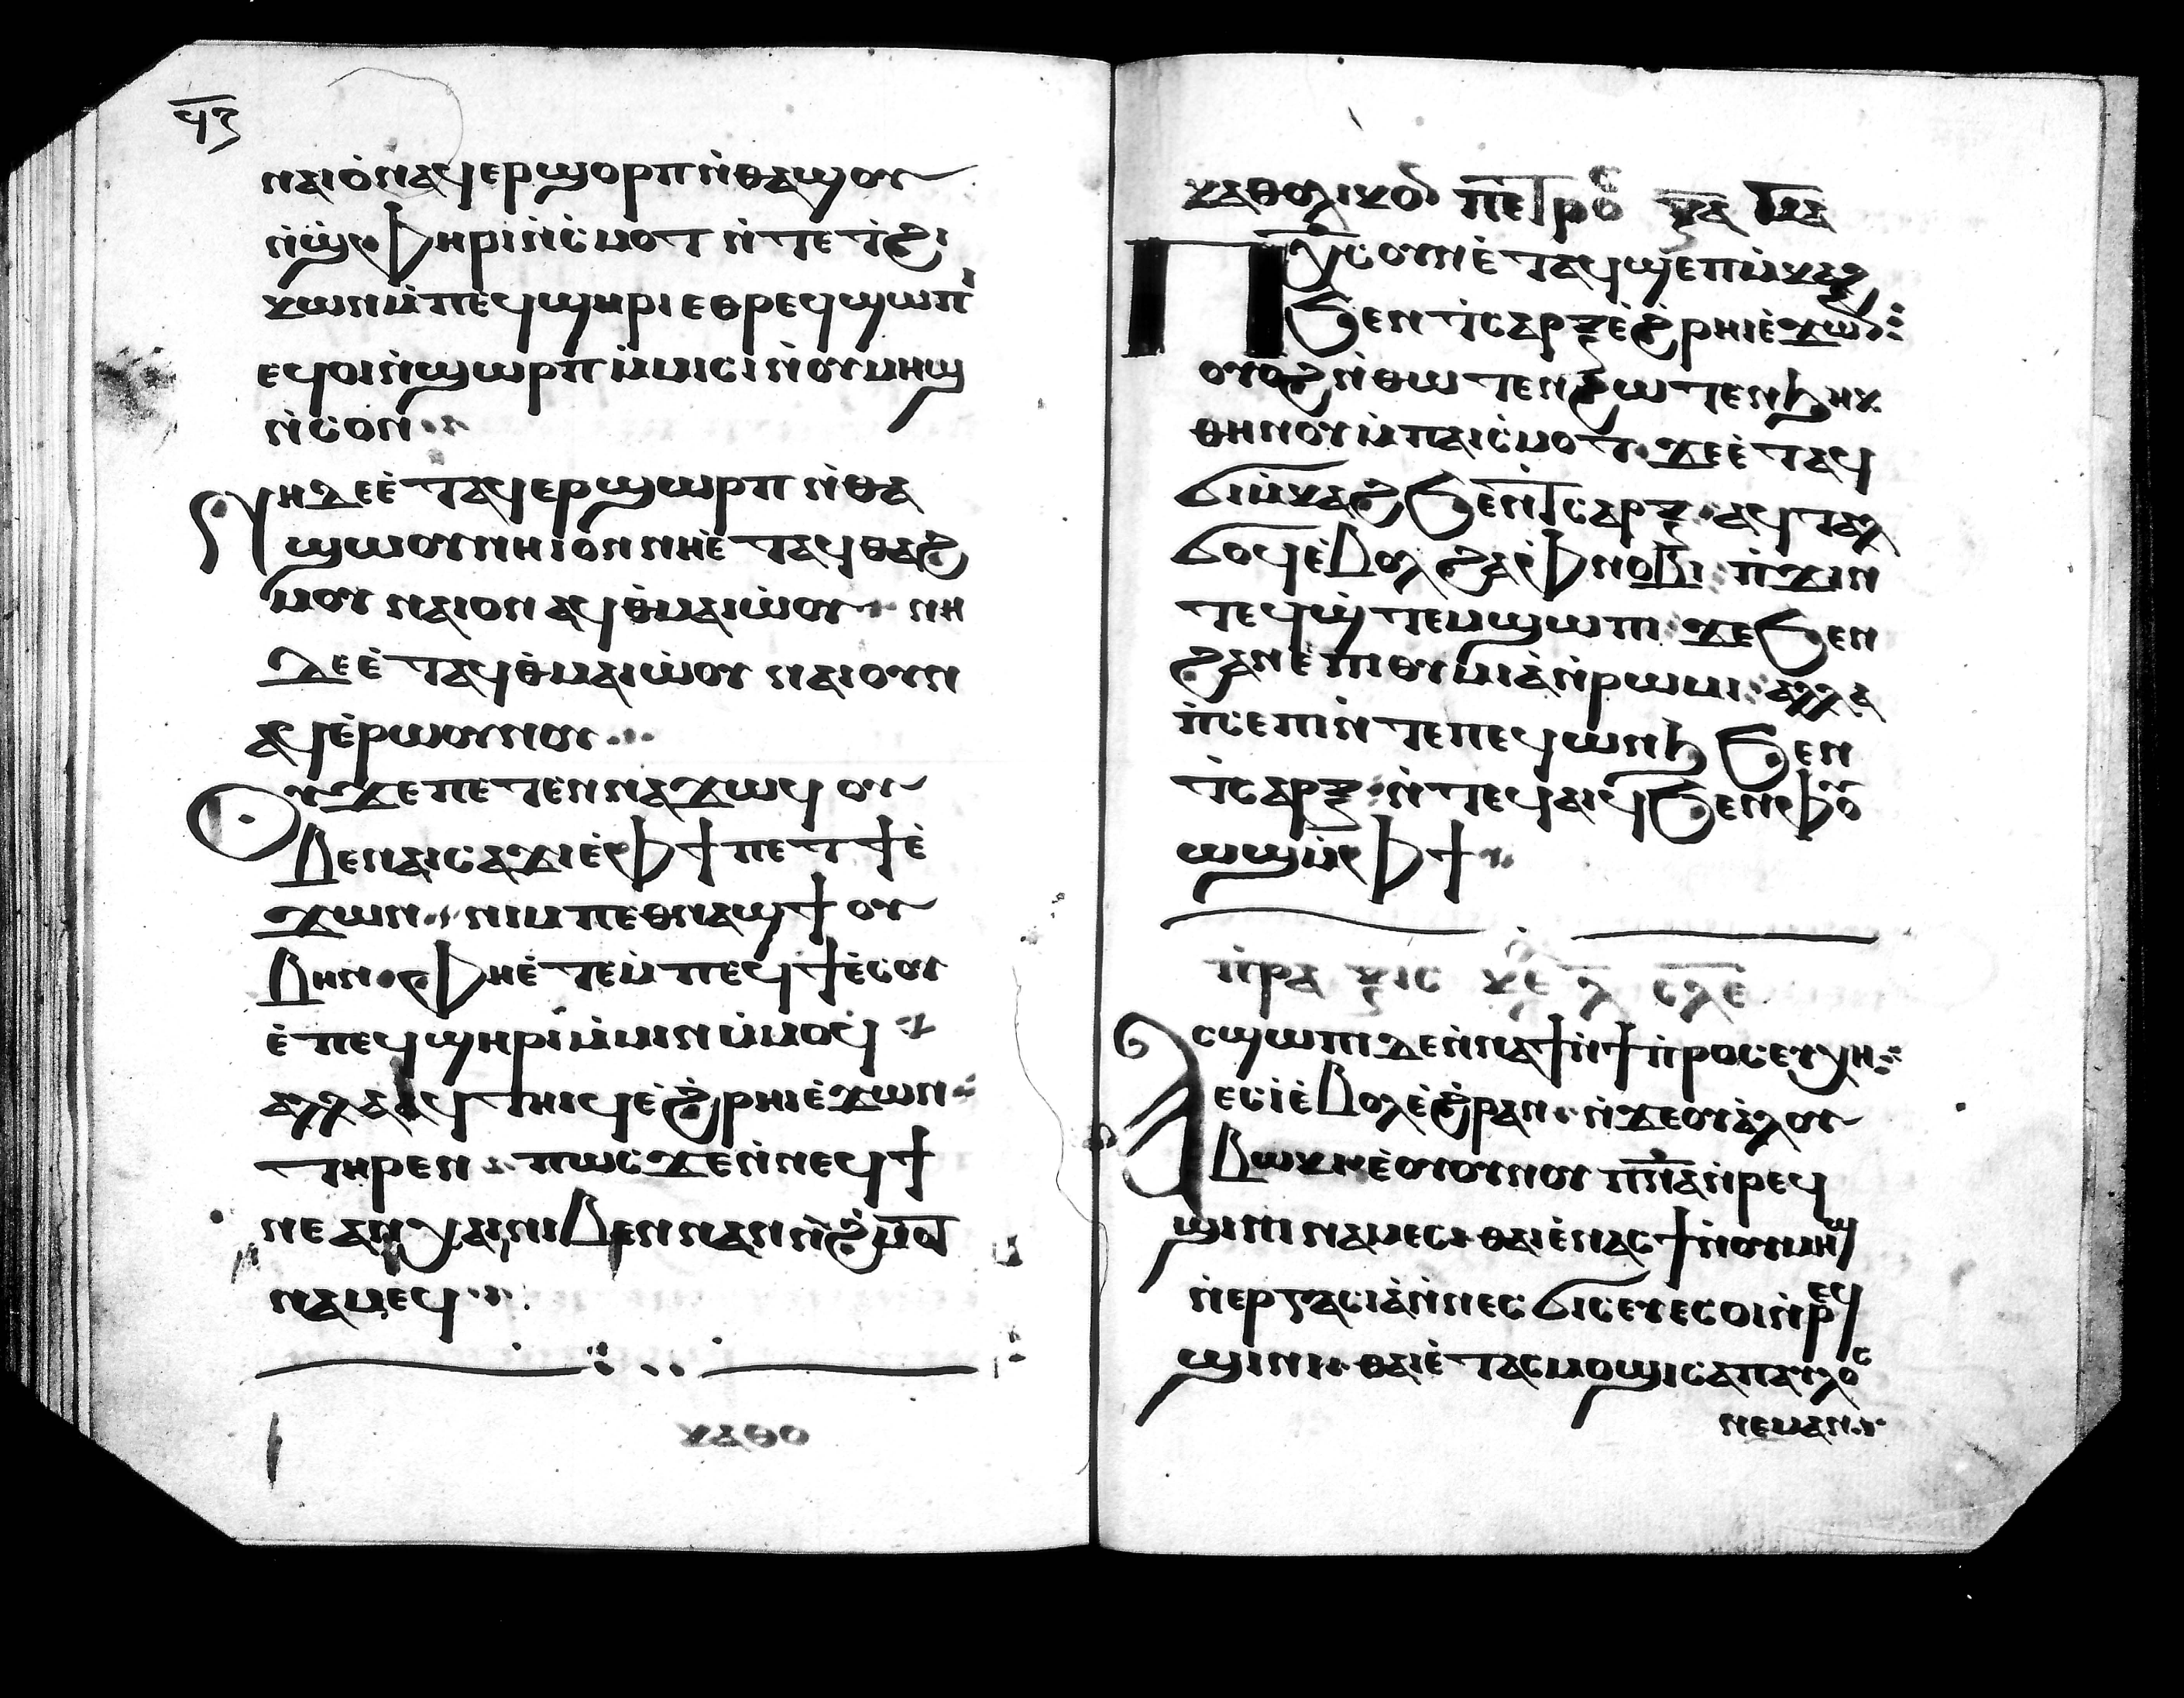 ϥⲍ
ⲛⲁⲓⲟⲛ ⲁϥⲉⲣϣⲟⲣⲡ ⲛ̀ⲑⲁϣⲟⲩ
ⲛ̀ϣ̀ⲫⲏⲣⲓ ⲛ̀ⲥ̀ⲙⲟⲧ ⲛ̀ⲧⲉ ϯϩⲓ
ⲕⲱⲛ ⲙ̀ⲡⲉϥϣⲏⲣⲓ ⲉⲑⲣⲉϥϣⲱⲡⲓ
ⲉϥⲟⲓ ⲛ̀ϣⲱⲣⲡ ⲙ̀ⲙⲓⲥⲓ ⲛ̀ⲟⲩⲙⲏϣ
ⲛ̀ⲥⲟⲛ
ⲛⲏ ⲇⲉ ⲉ̀ⲧⲁϥⲉⲣϣⲱⲣⲡ ⲛ̀ⲑⲁ
ϣⲱⲟⲩ ⲛⲏⲓⲟⲛ ⲛⲏ ⲉ̀ⲧⲁϥⲑⲁϩ
ⲙⲟⲩ ⲛⲁⲓⲟⲛ ⲁϥⲑ̀ⲙⲁⲓⲱ̀ⲟⲩ ⲛⲏ
ⲇⲉ ⲉ̀ⲧⲁϥⲑ̀ⲙⲁⲓⲱ̀ⲟⲩ ⲛⲁⲓⲟⲩⲛ
ⲁϥϯⲉ̀ⲣⲱⲟⲩ ⲛⲟⲩ
ⲟⲩ ϫⲉ ⲡⲉⲧⲉⲛⲛⲁϫⲱϥ ⲟⲩ
ⲃⲉ ⲛⲁⲓⲥⲁϫⲓ ⲉ̀ ⲫϯ ⲡⲉⲧϯ ⲉ̀
ϫⲱⲛ ⲛⲓⲙ ⲡⲉⲑⲛⲁϣϯ ⲟⲩ
ⲃⲏⲛ ⲫⲏ ⲉ̀ⲧⲉ ⲙ̀ⲡⲉϥϯⲁ̀ⲥⲟ
ⲉ̀ⲡⲉϥϣⲏⲣⲓ ⲙ̀ⲙⲓⲛ ⲙ̀ⲙⲟϥ
ⲁⲗⲗⲁ ⲁϥⲧⲏⲓϥ ⲉ̀ϩ̀ⲣⲏⲓ ⲉ̀ϫⲱⲛ
ⲧⲏⲣⲉⲛ ⲡⲱⲥ ϫⲉ ⲛ̀ⲛⲉϥϯ
ⲛⲉⲁⲛⲭⲁⲓ ⲛⲓⲃⲉⲛ ⲛⲁⲛ ⲛ̀ϩ̀ⲙⲟⲧ
ⲛⲉⲙⲁϥ
ⲕⲁⲑⲟ
ⲕⲁⲑⲟⲗⲓⲕⲟⲛ ⲡⲉⲧⲣⲟⲥ ⲕⲁ
ⲡⲭ̅ⲥ ⲟⲩⲛ ⲉ̀ⲧⲁϥϣⲉⲡⲙ̀ⲕⲁϩ
ϧⲉⲛ ϯⲥⲁⲣⲝ ⲉ̀ϩ̀ⲣⲏⲓ ⲉ̀ϫⲱⲛ
ⲟⲩⲟϩ ⲛ̀ⲑⲱⲧⲉⲛ ϩⲱⲧⲉⲛ ϧⲏⲕ
ⲑⲏⲛⲟⲩ ⲙ̀ⲡⲁⲓⲥ̀ⲙⲟⲧ ϫⲉ ⲉ̀ⲧⲁϥ
ϭⲓⲙ̀ⲕⲁϩ ϧⲉⲛ ϯⲥⲁⲣⲝ ⲁϥⲧⲁⲗ
ϭⲟϥ ⲉ̀ⲃⲟⲗ ϩⲁ ⲫⲛⲟⲃⲓ ⲡ̀ϫⲓⲛ
ⲧⲉϥϣ̀ⲧⲉⲙϣⲱⲡⲓ ϫⲉ ϧⲉⲛ
ϩⲁⲛⲉ̀ⲡⲓⲑⲩⲙⲓⲁ̀ ⲛ̀ⲣⲱⲙⲓ ⲁⲗⲗⲁ
ⲡ̀ⲥⲉⲡⲓ ⲛ̀ⲧⲉ ⲡⲉϥⲱⲛϧ ϧⲉⲛ
ϯⲥⲁⲣⲝ ⲛ̀ⲧⲉϥⲁⲓϥ ϧⲉⲛ ⲫⲟⲩ
ⲱϣ ⲙ̀ⲫϯ
ⲡ̀ⲣⲁⲝⲓⲥ ⲕⲉ ⲗ ⲥⲗⲉ
ⲁⲥϣⲱⲡⲓ ⲇⲉ ⲛ̀ⲛⲁϯ ⲛ̀ϯⲡ̀ⲣⲟⲥⲉⲩⲭⲏ
ⲉⲥⲓ ⲉ̀ⲃⲟⲗ ⲉ̀ϩ̀ⲣⲁⲛ ⲛ̀ϫⲉ ⲟⲩⲁ̀ⲗⲟⲩ
ⲃⲱⲕⲓ ⲉ̀ⲟⲩⲟⲛ ⲟⲩⲡⲛ̅ⲁ̅ ⲛ̀ⲣⲉϥ
ϣⲓⲛⲓ ⲛⲉⲙⲁⲥ ⲑⲁⲓ ⲉ̀ⲛⲁⲥϯ ⲛ̀ⲟⲩⲙⲏϣ
ⲛ̀ⲉⲣⲅⲁⲥⲓⲁ̀ ⲛ̀ⲛⲉⲥϭⲓⲥⲉⲩ ⲉⲥⲟⲓ ⲛ̀ⲣⲉϥ
ϣⲓⲛⲓ ⲑⲁⲓ ⲉ̀ⲧⲁⲥⲙⲟϣⲓ ⲥⲁ ⲡⲁⲩⲗⲟⲥ
ⲛⲉⲙⲁⲛ